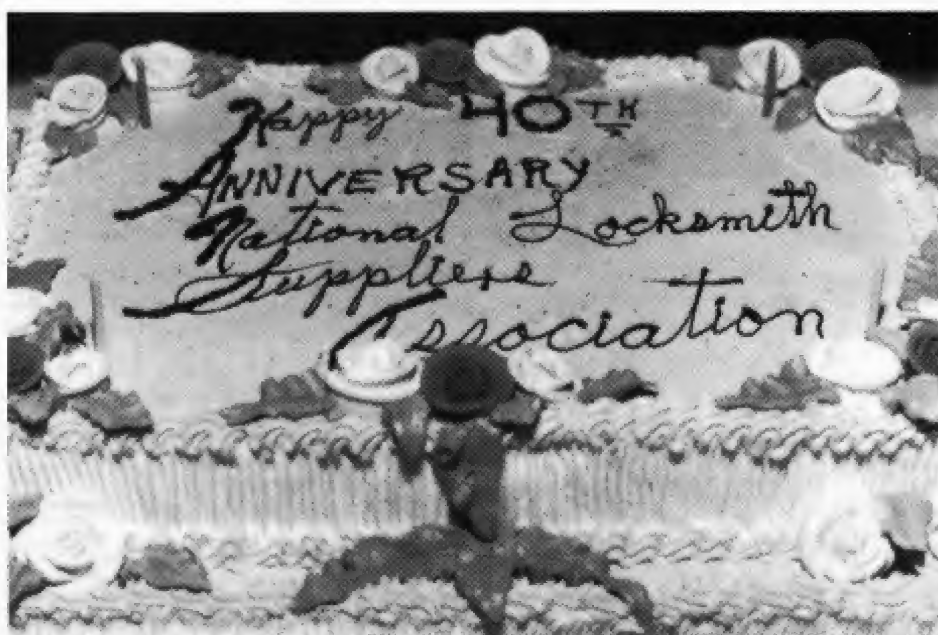 Happy 40TH
ANNIVERSARY
National Locksmith
Suppliers
Association